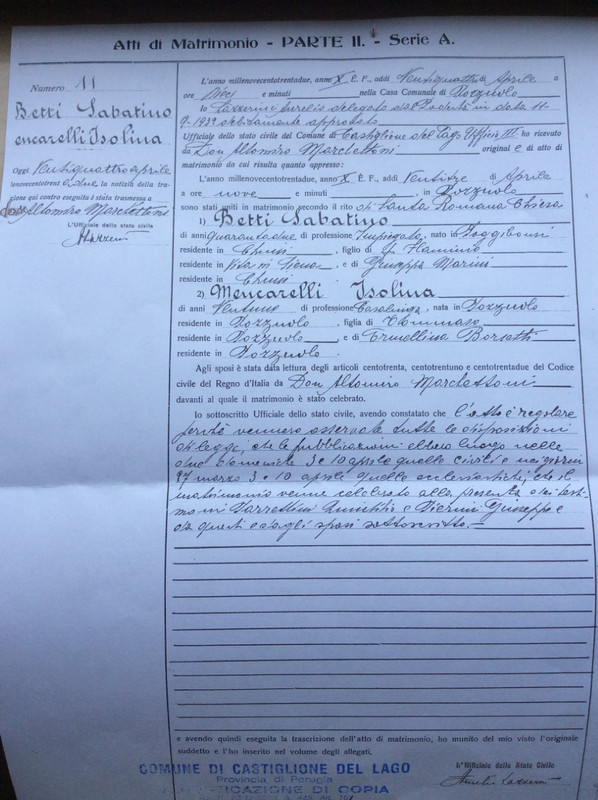 Atti di Matrimonio - PARTE II. - Serie A.
Numero 11
Betti Sabatino
encarelli Isolina
Oggi Ventiquattro aprile
lenovecentotrent adue la notizia della tra-
zione qui contro eseguita è stata trasmessa a
Altomiro Marchettoni
L'Ufficiale dello stato civile
L'anno millenovecentotrentadue, anno X E. F., addì Ventiquattro di Aprile a
ore dieci e minuti nella Casa Comunale di Pozzuolo
Io Lazzerini Aurelio delegato del Podestà in data 11-
debitamente approvato
Ufficiale dello stato civile del Comune di Castiglione del Lago Ufficio III ho ricevuto
da Don Altomiro Marchettoni originale e di atto di
matrimonio da cui risulta quanto appresso:
L'anno millenovecentotrentadue, anno X E. F., addì Ventitre di Aprile
a ore nove e minuti in Pozzuolo
sono stati uniti in matrimonio secondo il rito di Santa Romana Chiesa
1) Betti Sabatino
di anni quarantadue di professione Impiegato, nato in Poggibonsi
residente in Chiusi, figlio di fu Flaminio
residente in Vita in Siena, e di Giuseppa Marini
residente in Chiusi.
2) Mencarelli Isolina
di anni Ventuno di professione Casalinga, nata in Pozzuolo
residente in Pozzuolo, figlia di Tommaso
residente in Pozzuolo e di Ermellina Borsetti
residente in Pozzuolo.
Agli sposi è stata data lettura degli articoli centotrenta, centotrentuno e centotrentadue del Codice
civile del Regno d'Italia da Don Altomiro Marchettoni
davanti al quale il matrimonio è stato celebrato.
Io sottoscritto Ufficiale dello stato civile, avendo constatato che l'atto è regolare
perchè vennero osservate tutte le disposizioni
di legge, che le pubblicazioni ebbero luogo nelle
due domeniche 3 e 10 aprile quelle civili e nei giorni
27 marzo 3 e 10 aprile quelle ecclesiastiche, che il
matrimonio venne celebrato alla presenza dei testi-
moni e Pierini Giuseppe e
da questi e dagli sposi sottoscritto.
e avendo quindi eseguita la trascrizione dell'atto di matrimonio, ho munito del mio visto l'originale
suddetto e l'ho inserito nel volume degli allegati.
L'Ufficiale dello Stato Civile
COMUNE DI CASTIGLIONE DEL LAGO
Provincia di Perugia
TICAZIONE DI COPIA